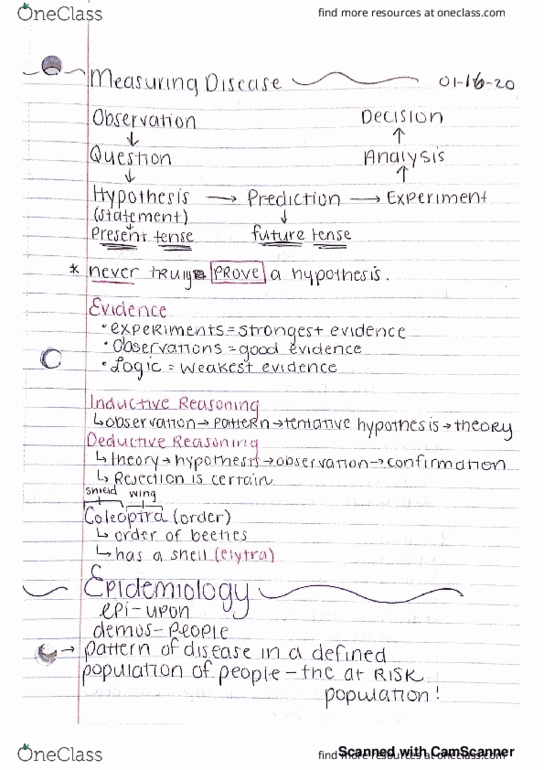 OneClass
find more resources at oneclass.com
Measuring Disease
01-16-20
Observation
Decision
↓
↑
Question
Analysis
↓
↑
Hypothesis → Prediction → Experiment
(statement)
↓
Present tense
future tense
* never truly PROVE a hypothesis.
Evidence
• experiments = strongest evidence
• Observations = good evidence
• Logic = weakest evidence
Inductive Reasoning
↳ observation → pattern → tentative hypothesis → theory
Deductive Reasoning
↳ theory → hypothesis → observation → confirmation
↳ Rejection is certain
shield wing
Coleoptira (order)
↳ order of beetles
↳ has a shell (elytra)
Epidemiology
epi - upon
demos - people
→ pattern of disease in a defined
population of people - the at RISK
population!
OneClass
find more resources at oneclass.com
Scanned with CamScanner